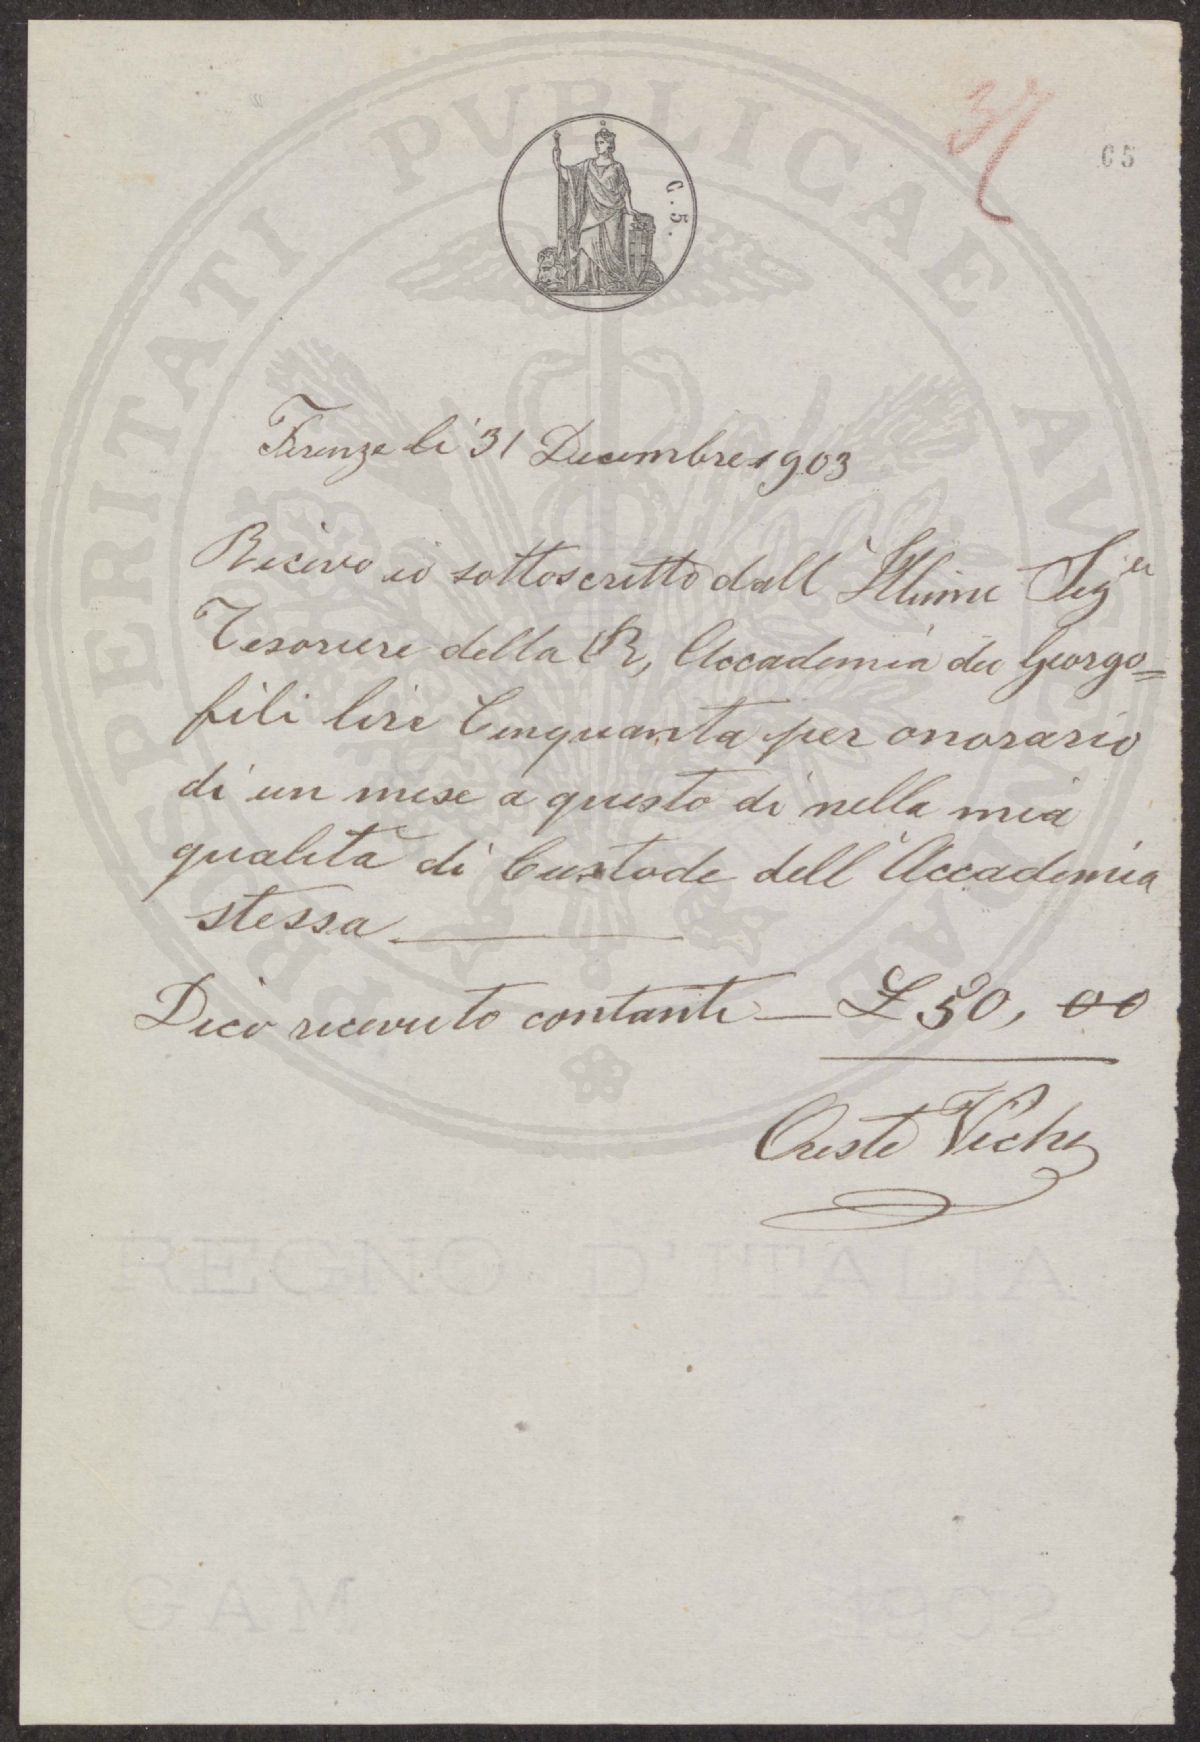 37
C 5
C. 5.
PROSPERITATI PVBLICAE AVGENDAE
Firenze li 31 Decembre 1903
Ricevo io sottoscritto dall' Illmu Sig.
Tesoriere della R. Accademia dei Georgo=
fili lire Cinquanta per onorario
di un mese a questo dì nella mia
qualità di Custode dell' Accademia
stessa
Dico ricevuto contanti — £ 50, 00
Oreste Vichi
REGNO D'ITALIA
GAM 1902